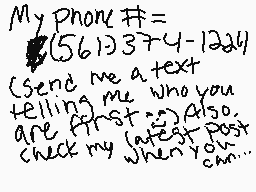 My phone #=
(561)374-1224
(send me a text
telling me who you
are first :) Also,
check my latest post
when you
can...